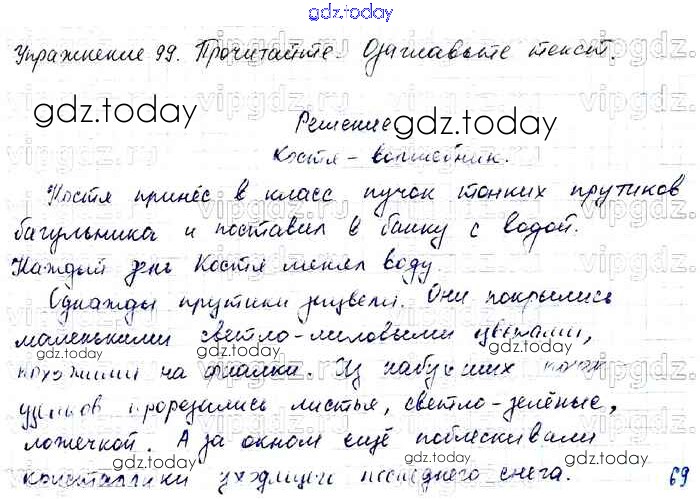 gdz.today
Упражнение 99. Прочитайте. Озаглавьте текст.
gdz.today
Решение
gdz.today
Костя - волшебник.
Костя принёс в класс пучок тонких прутиков
багульника и поставил в банку с водой.
Каждый день Костя менял воду.
Однажды прутики зацвели. Они покрылись
маленькими светло-лиловыми цветами,
gdz.today
gdz.today
похожими на фиалки. Из набухших почек
узелков прорезились листья, светло-зелёные,
ложечкой. А за окном ещё поблескивали
gdz.today
gdz.today
кристаллики уходящего последнего снега.
69